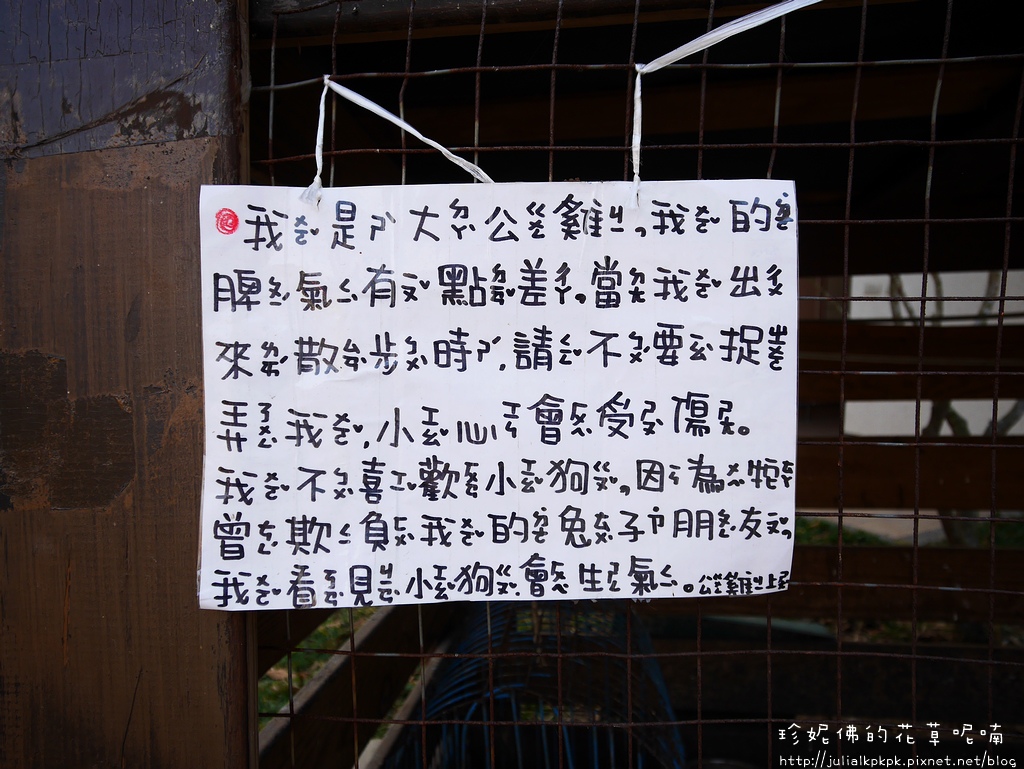 我ㄨㄛˇ是ㄕˋ大ㄉㄚˋ公ㄍㄨㄥ雞ㄐㄧ,我ㄨㄛˇ的ㄉㄜ˙
脾ㄆㄧˊ氣ㄑㄧˋ有ㄧㄡˇ點ㄉㄧㄢˇ差ㄔㄚ。當ㄉㄤ我ㄨㄛˇ出ㄔㄨ
來ㄌㄞˊ散ㄙㄢˋ步ㄅㄨˋ時ㄕˊ,請ㄑㄧㄥˇ不ㄅㄨˊ要ㄧㄠˋ捉ㄓㄨㄛ
弄ㄋㄨㄥˋ我ㄨㄛˇ,小ㄒㄧㄠˇ心ㄒㄧㄣ會ㄏㄨㄟˋ受ㄕㄡˋ傷ㄕㄤ。
我ㄨㄛˇ不ㄅㄨˋ喜ㄒㄧˇ歡ㄏㄨㄢ小ㄒㄧㄠˇ狗ㄍㄡˇ,因ㄧㄣ為ㄨㄟˋ牠ㄊㄚ
曾ㄘㄥˊ欺ㄑㄧ負ㄈㄨˋ我ㄨㄛˇ的ㄉㄜ˙兔ㄊㄨˋ子ㄗ˙朋ㄆㄥˊ友ㄧㄡˇ,
我ㄨㄛˇ看ㄎㄢˋ見ㄐㄧㄢˋ小ㄒㄧㄠˇ狗ㄍㄡˇ會ㄏㄨㄟˋ生ㄕㄥ氣ㄑㄧˋ。公ㄍㄨㄥ雞ㄐㄧ上ㄕㄤˋ
珍妮佛的花草呢喃
http://julialkpkpk.pixnet.net/blog